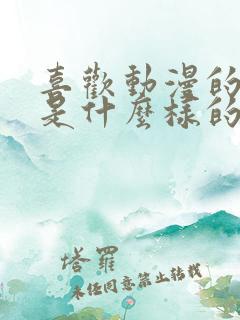 喜歡動漫的
是什麼樣的
塔羅
未經同意禁止轉載